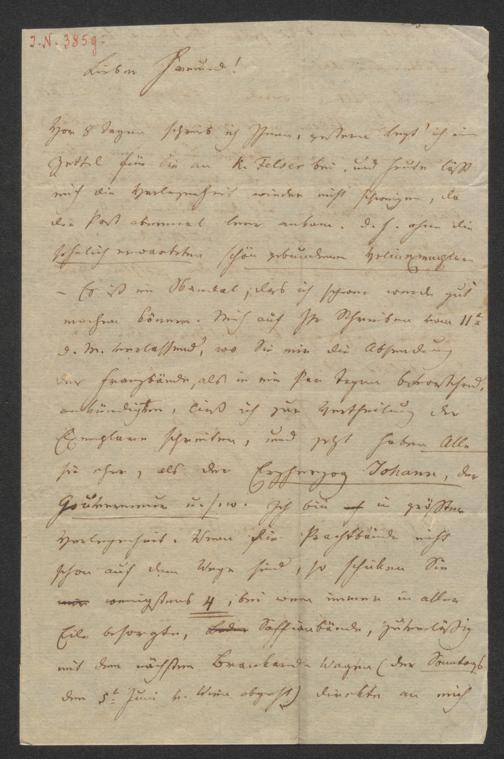 I.N. 3859.
Lieber Freund!
Vor 8 Tagen schrieb ich Ihnen, gestern legt' ich ein
Zettel für Sie an K. Felser bei, und heute läßt
mich die Verlegenheit wieder nicht schweigen, da
die Post abermal leer ankam. d. h. ohne die
sehnlich erwarteten schön gebundenen Velinexemplare
– Es ist ein Skandal, daß ich schwer werde gut
machen können. Mich auf Ihr Schreiben vom 11t
d. M. verlassend, wo Sie mir die Absendung
der Franzbände, als in ein Paar Tagen bevorstehend,
ankündigten, ließ ich zur Vertheilung der
Exemplare schreiten, und jetzt haben Alle
sie eher, als der Erzherzog Johann, der
Gouverneur u.s.w. Ich bin in größter
Verlegenheit. Wenn die Prachtbände nicht
schon auf dem Wege sind, so schicken Sie
wenigstens 4, bei wem immer in aller
Eile besorgte, Saffianbände, zuverlässig
mit dem nächsten Brankard Wagen (der Sonntags
den 5t Juni v. Wien abgeht) direkte an mich